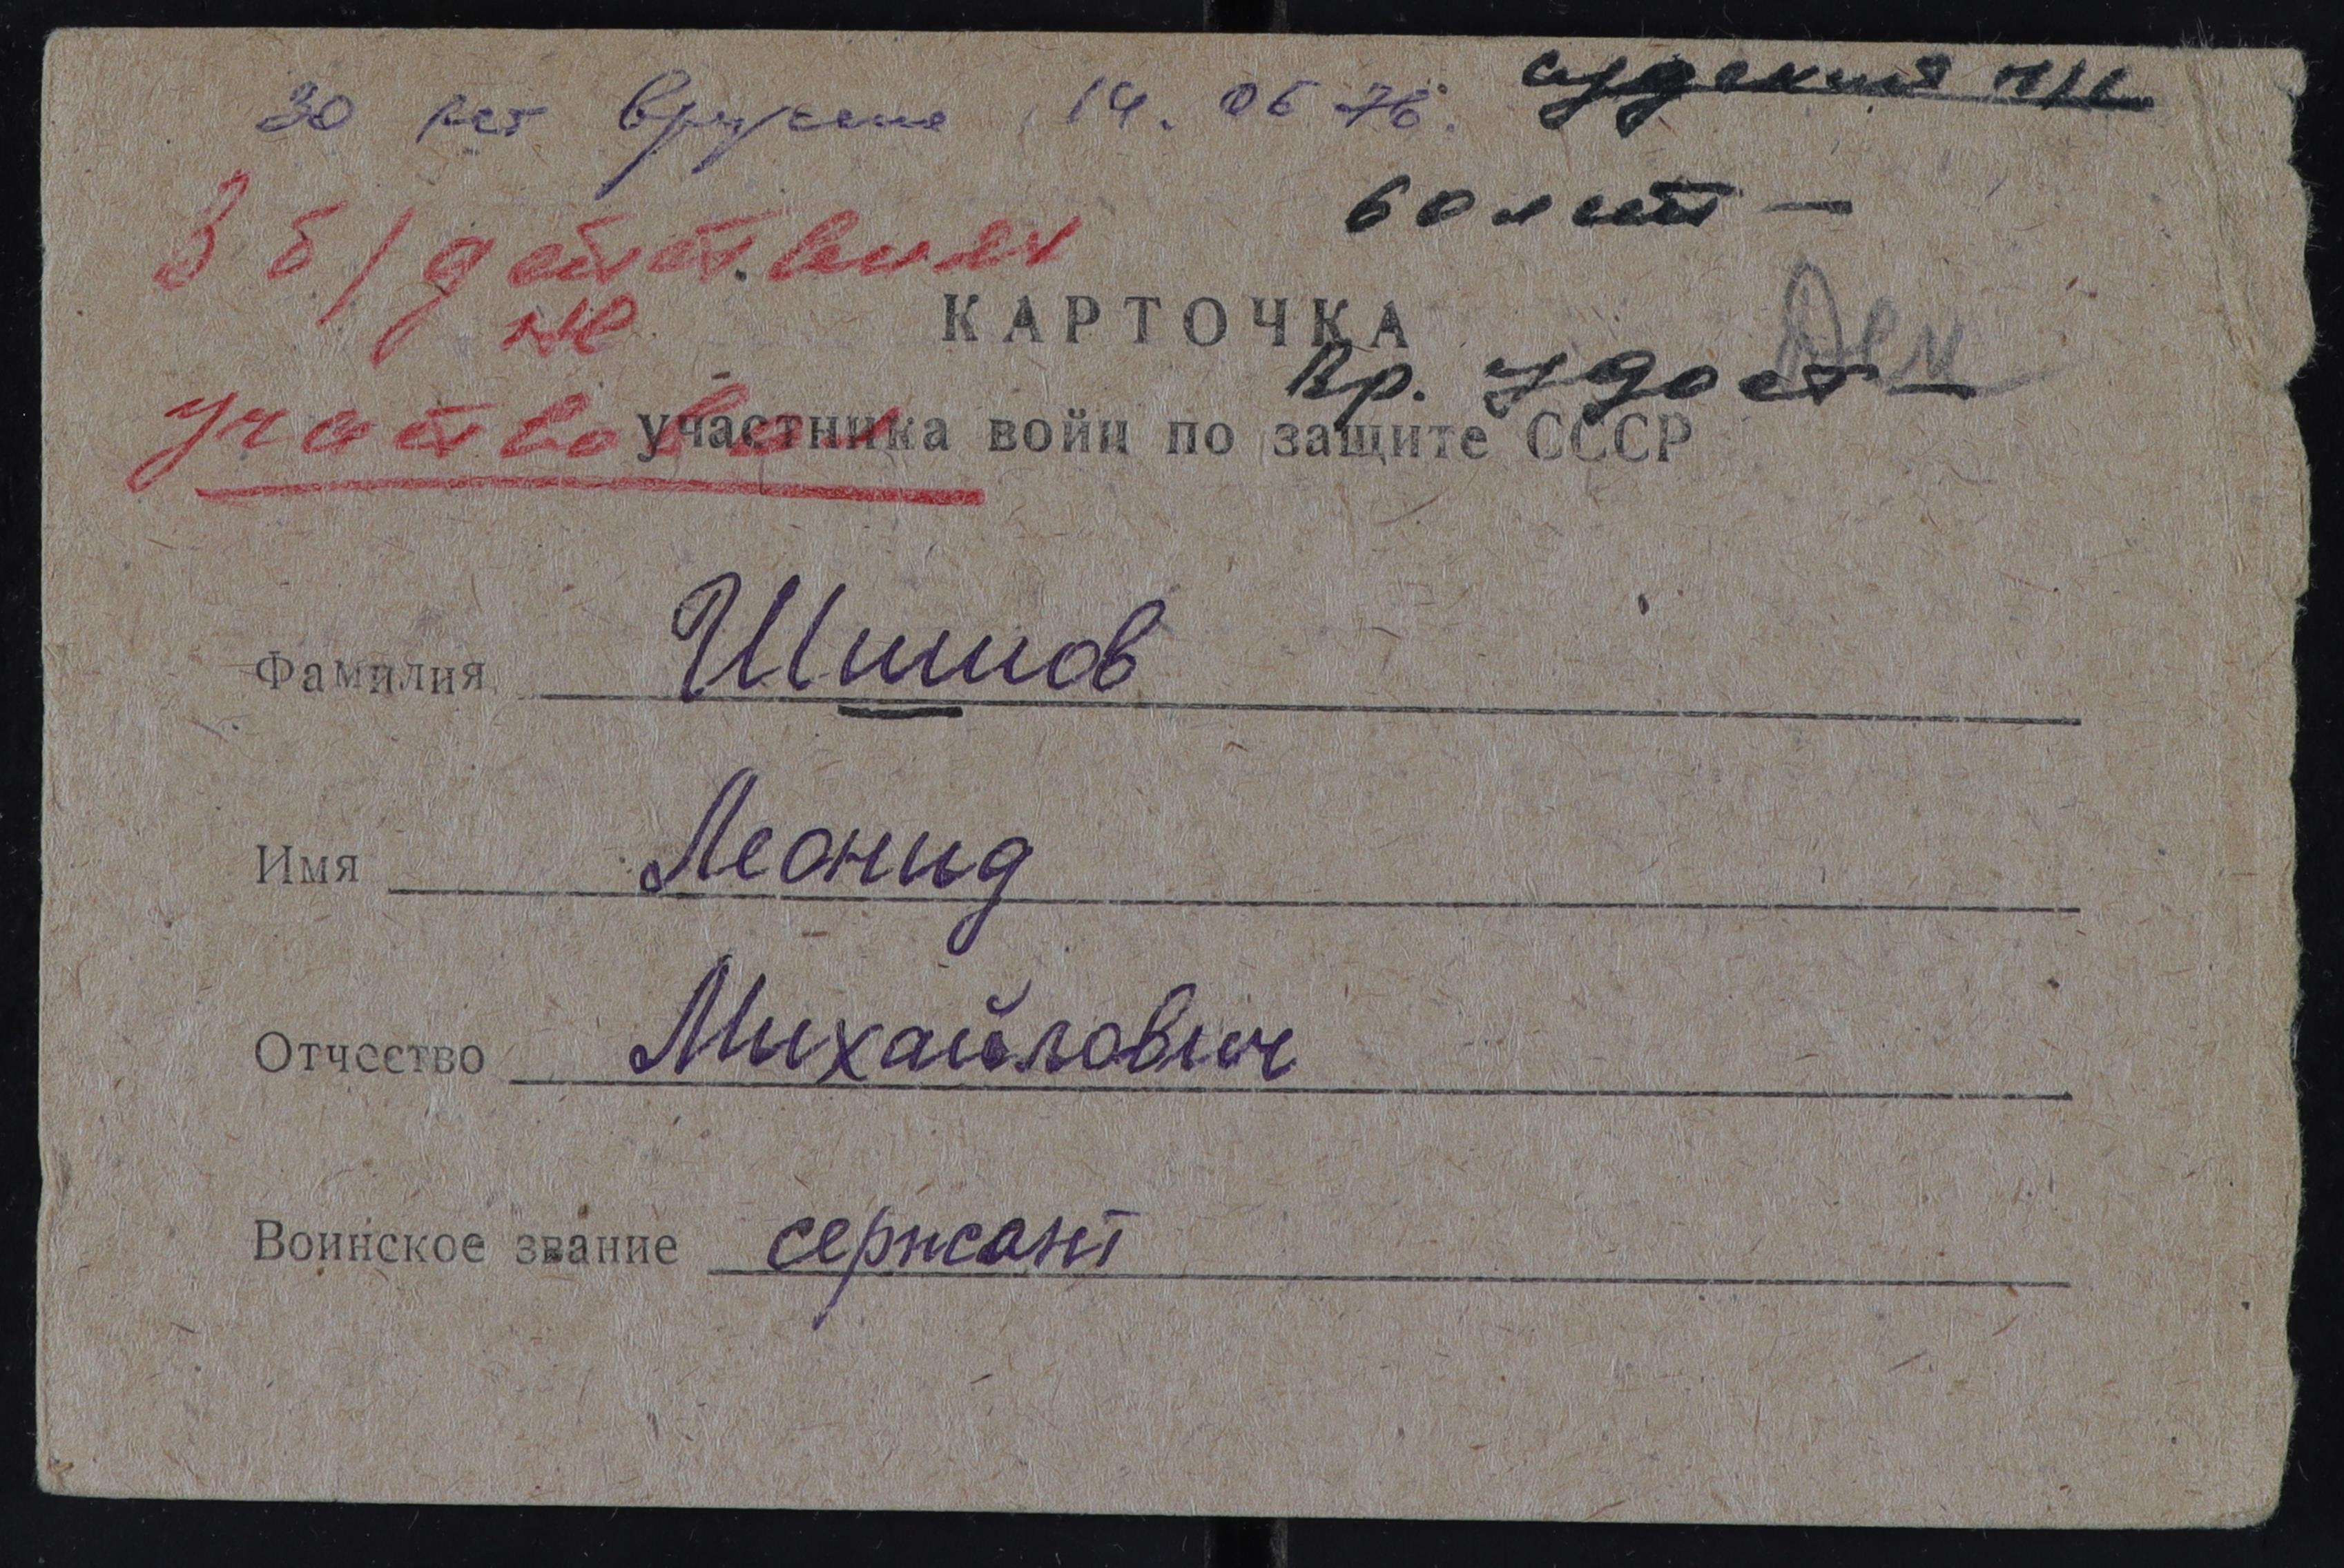 30 лет вручена 14.06 76.
Судский с/с
60 лет —
В б/действиях
не
участвовал
КАРТОЧКА
Вр. удост —
участника войн по защите СССР
Фамилия Шишов
Имя Леонид
Отчество Михайлович
Воинское звание сержант